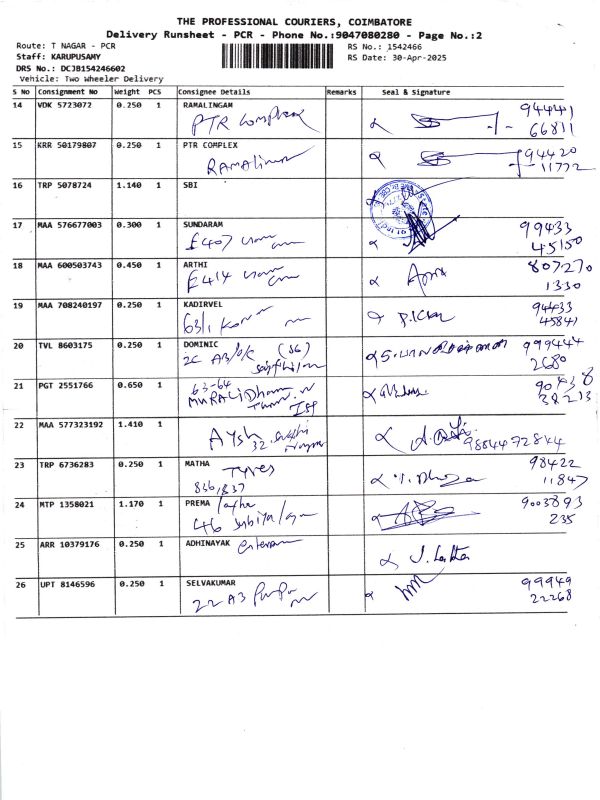 THE PROFESSIONAL COURIERS, COIMBATORE
Delivery Runsheet - PCR - Phone No.:9047080280 - Page No.:2
Route: T NAGAR - PCR RS No.: 1542466
Staff: KARUPUSAMY RS Date: 30-Apr-2025
DRS No.: DCJB154246602
Vehicle: Two Wheeler Delivery
S No Consignment No Weight PCS Consignee Details Remarks Seal & Signature
14 VDK 5723072 0.250 1 RAMALINGAM 94441
PTR Complex 66811
15 KRR 50179807 0.250 1 PTR COMPLEX 94420
Ramalingam 11772
16 TRP 5078724 1.140 1 SBI
17 MAA 576677003 0.300 1 SUNDARAM 99433
E407 45150
18 MAA 600503743 0.450 1 ARTHI 807270
E414 1330
19 MAA 708240197 0.250 1 KADIRVEL 94433
63/1 45841
20 TVL 8603175 0.250 1 DOMINIC 999444
2C A3/b/k (S6) 2680
21 PGT 2551766 0.650 1 63-64 90438
MURALI Dharan 38213
22 MAA 577323192 1.410 1
Aysh 32 9884472844
23 TRP 6736283 0.250 1 MATHA Tyres 98422
836,837 11847
24 MTP 1358021 1.170 1 PREMA 9003893
46 235
25 ARR 10379176 0.250 1 ADHINAYAK
26 UPT 8146596 0.250 1 SELVAKUMAR 99949
22 A3 22268